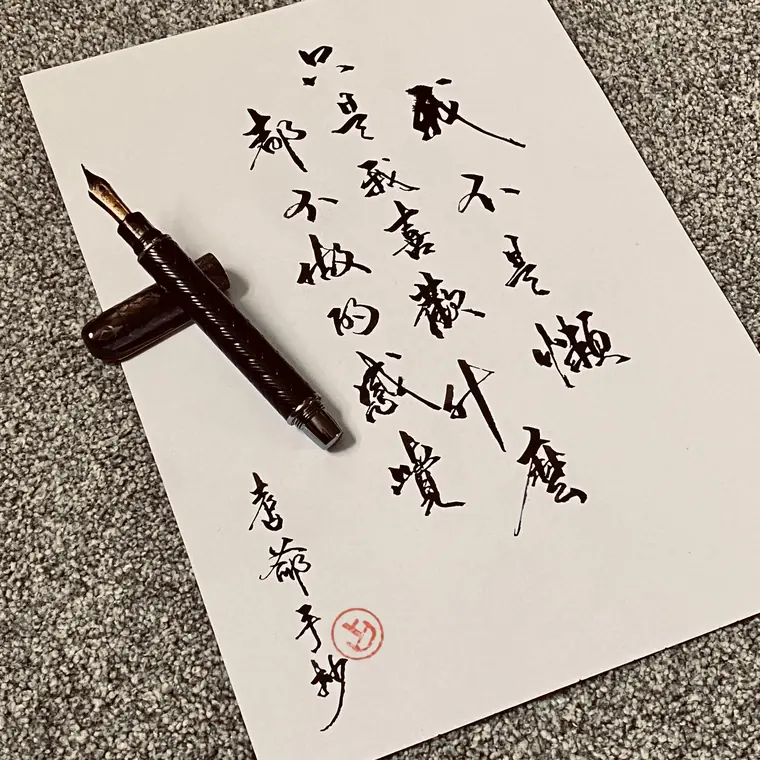 我不是懶
只是我喜歡什麼
都不做的感覺
手抄